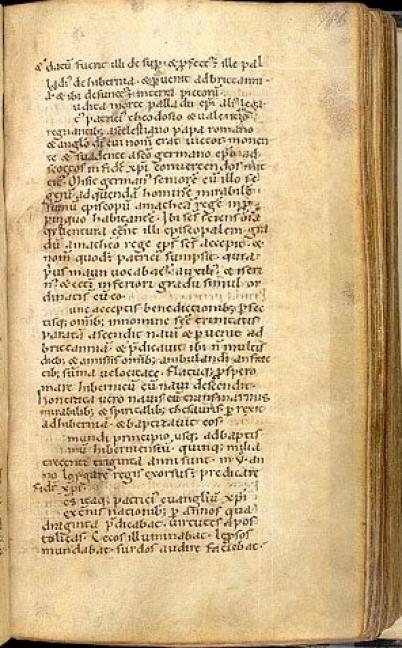 & datū fuerit illi de sup̄ · & ꝓfect' ē ille pal
ladi' de hibernia · & ꝑuenit ad brittanni
ā · & ibi defunct' ē in terra pictorū
udita morte palladii ep̄i ali' lega
t' patrici' theodosio & ualentino
regnantib; a celestino papa romano
& anglo dī cui nom̄ erat uictor monen
te & suadente a sc̄o germano ep̄o ad
scottos in fidē xp̄i conuertendos mit
german' seniorē cū illo se
ad quendā hominē mirabilē
summū episcopū amathea rege in ꝓ
pinquo habitantē · Ibi sc̄s sciens om̄a
q̄ uentura eēnt illi episcopalem gra
dū amatheo rege ep̄s sc̄s accepit · &
nom̄ quod ē patrici' sumpsit · quia
p̄us maun uocabat'
inferiori gradu simul or
dinatis cū eo
unc acceptis benedictionib; ꝑfec
tisq; omib; in nomine scē trinitatis
paratā ascendit nauī & ꝑuenit ad
brittanniā · & p̄dicauit ibi n̄ multis
dieb; & amissis omib; ambulandi anfrac
tib; summa uelocitate · flatuq; ꝓspero
mare hibernicū cū naui descendit ·
honerata uero nauis cū transmarinis
mirabilib; & spiritalib; thesauris ꝑrexit
ad hiberniā · & baptizauit eos ·
mundi principio usq; ad baptis
mū hibernensiū · quinq; milia
trecenti triginta anni sunt · in v · an
no loygare regis exorsus ē predicare
fidē xp̄i ·
cs itaq; patrici' euangliū xp̄i
ex̄tnis nationib; ꝑ annos qua
draginta p̄dicabat · uirtutes apos
tolicas · Cecos illuminabat · leprosos
mundabat · surdos audire faciebat ·